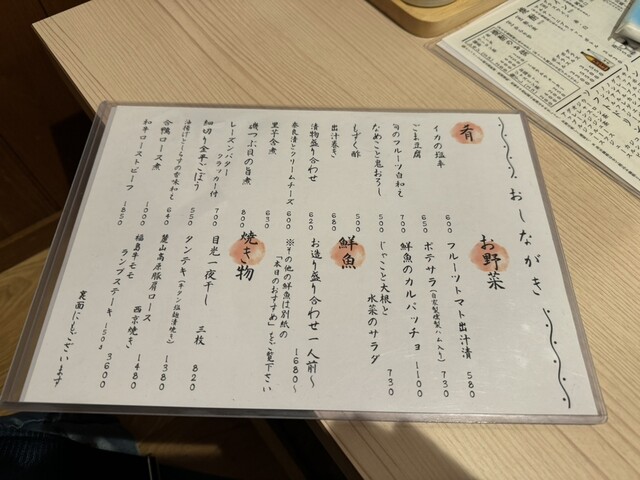 おしながき
肴
イカの塩辛 600
ごま豆腐 650
旬のフルーツ白和え 700
なめこと鬼おろし 500
もずく酢 500
出汁巻き 680
漬物盛り合わせ 620
奈良漬とクリームチーズ 600
里芋含煮 630
磯つぶ貝の旨煮 800
レーズンバター
クラッカー付 700
細切り金平ごぼう 550
合鴨ロース煮 1000
和牛ローストビーフ 1850
お野菜
フルーツトマト出汁漬 580
ポテサラ(自家製燻製ハム入り) 730
鮮魚のカルパッチョ 1100
じゃこと大根と
水菜のサラダ 730
鮮魚
お造り盛り合わせ 一人前〜 1680〜
※その他の鮮魚は別紙の
「本日のおすすめ」をご覧下さい
焼き物
目光一夜干し 三枚 820
タンテキ(牛タン塩麹漬焼き) 1380
麓山高原豚肩ロース
西京焼き 1480
福島牛モモ
ランプステーキ 150g 3600
裏面にもございます